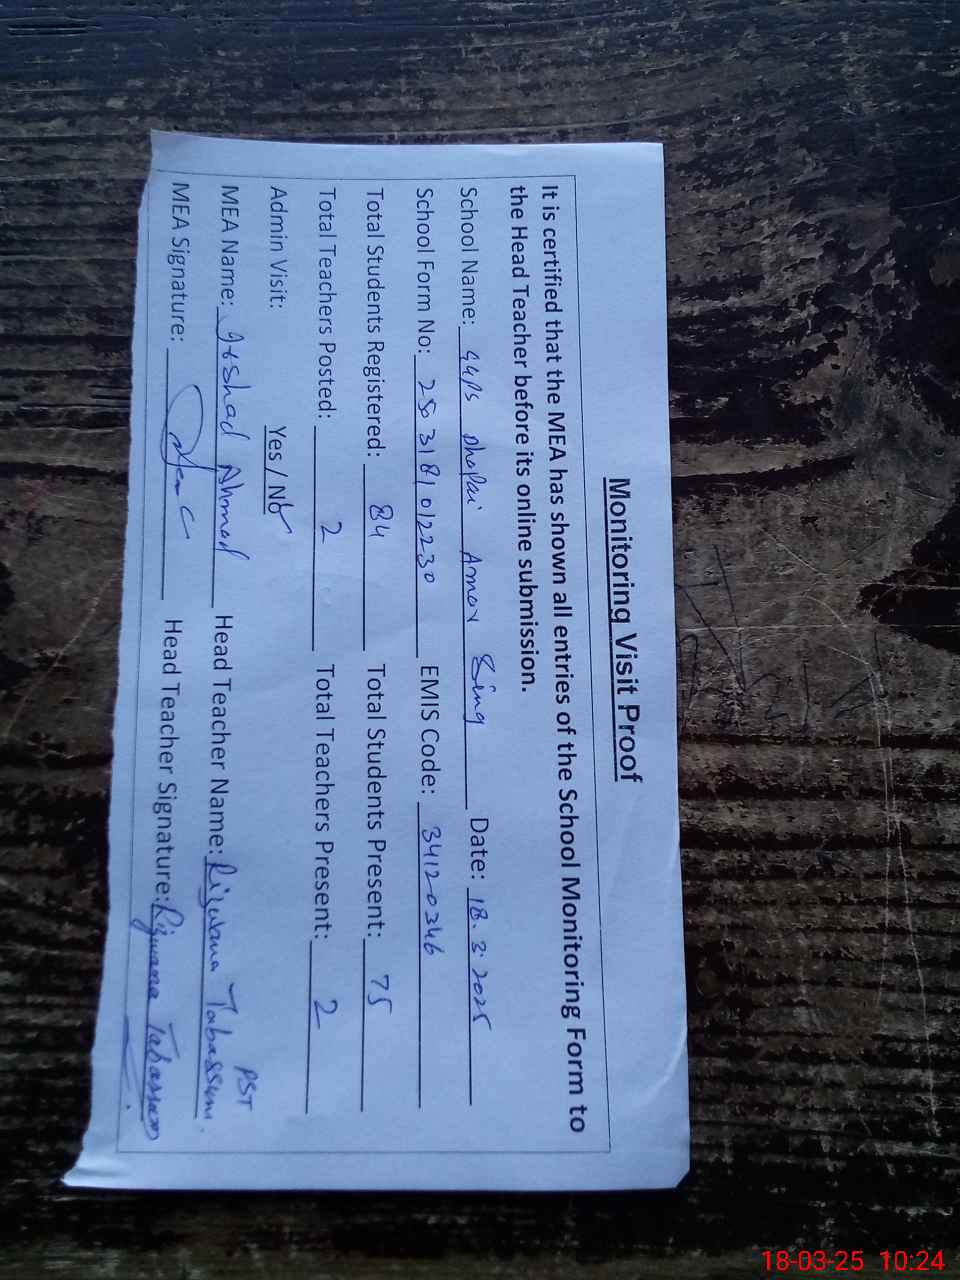 Monitoring Visit Proof
It is certified that the MEA has shown all entries of the School Monitoring Form to
the Head Teacher before its online submission.
School Name: GGPS Dhalai Amar Sing Date: 18.3.2025
School Form No: 253181012230 EMIS Code: 34120346
Total Students Registered: 84 Total Students Present: 75
Total Teachers Posted: 2 Total Teachers Present: 2
Admin Visit: Yes / No
PST
MEA Name: Irshad Ahmed Head Teacher Name: Rizwana Tabassum.
MEA Signature: Head Teacher Signature: Rizwana Tabassum
18-03-25 10:24